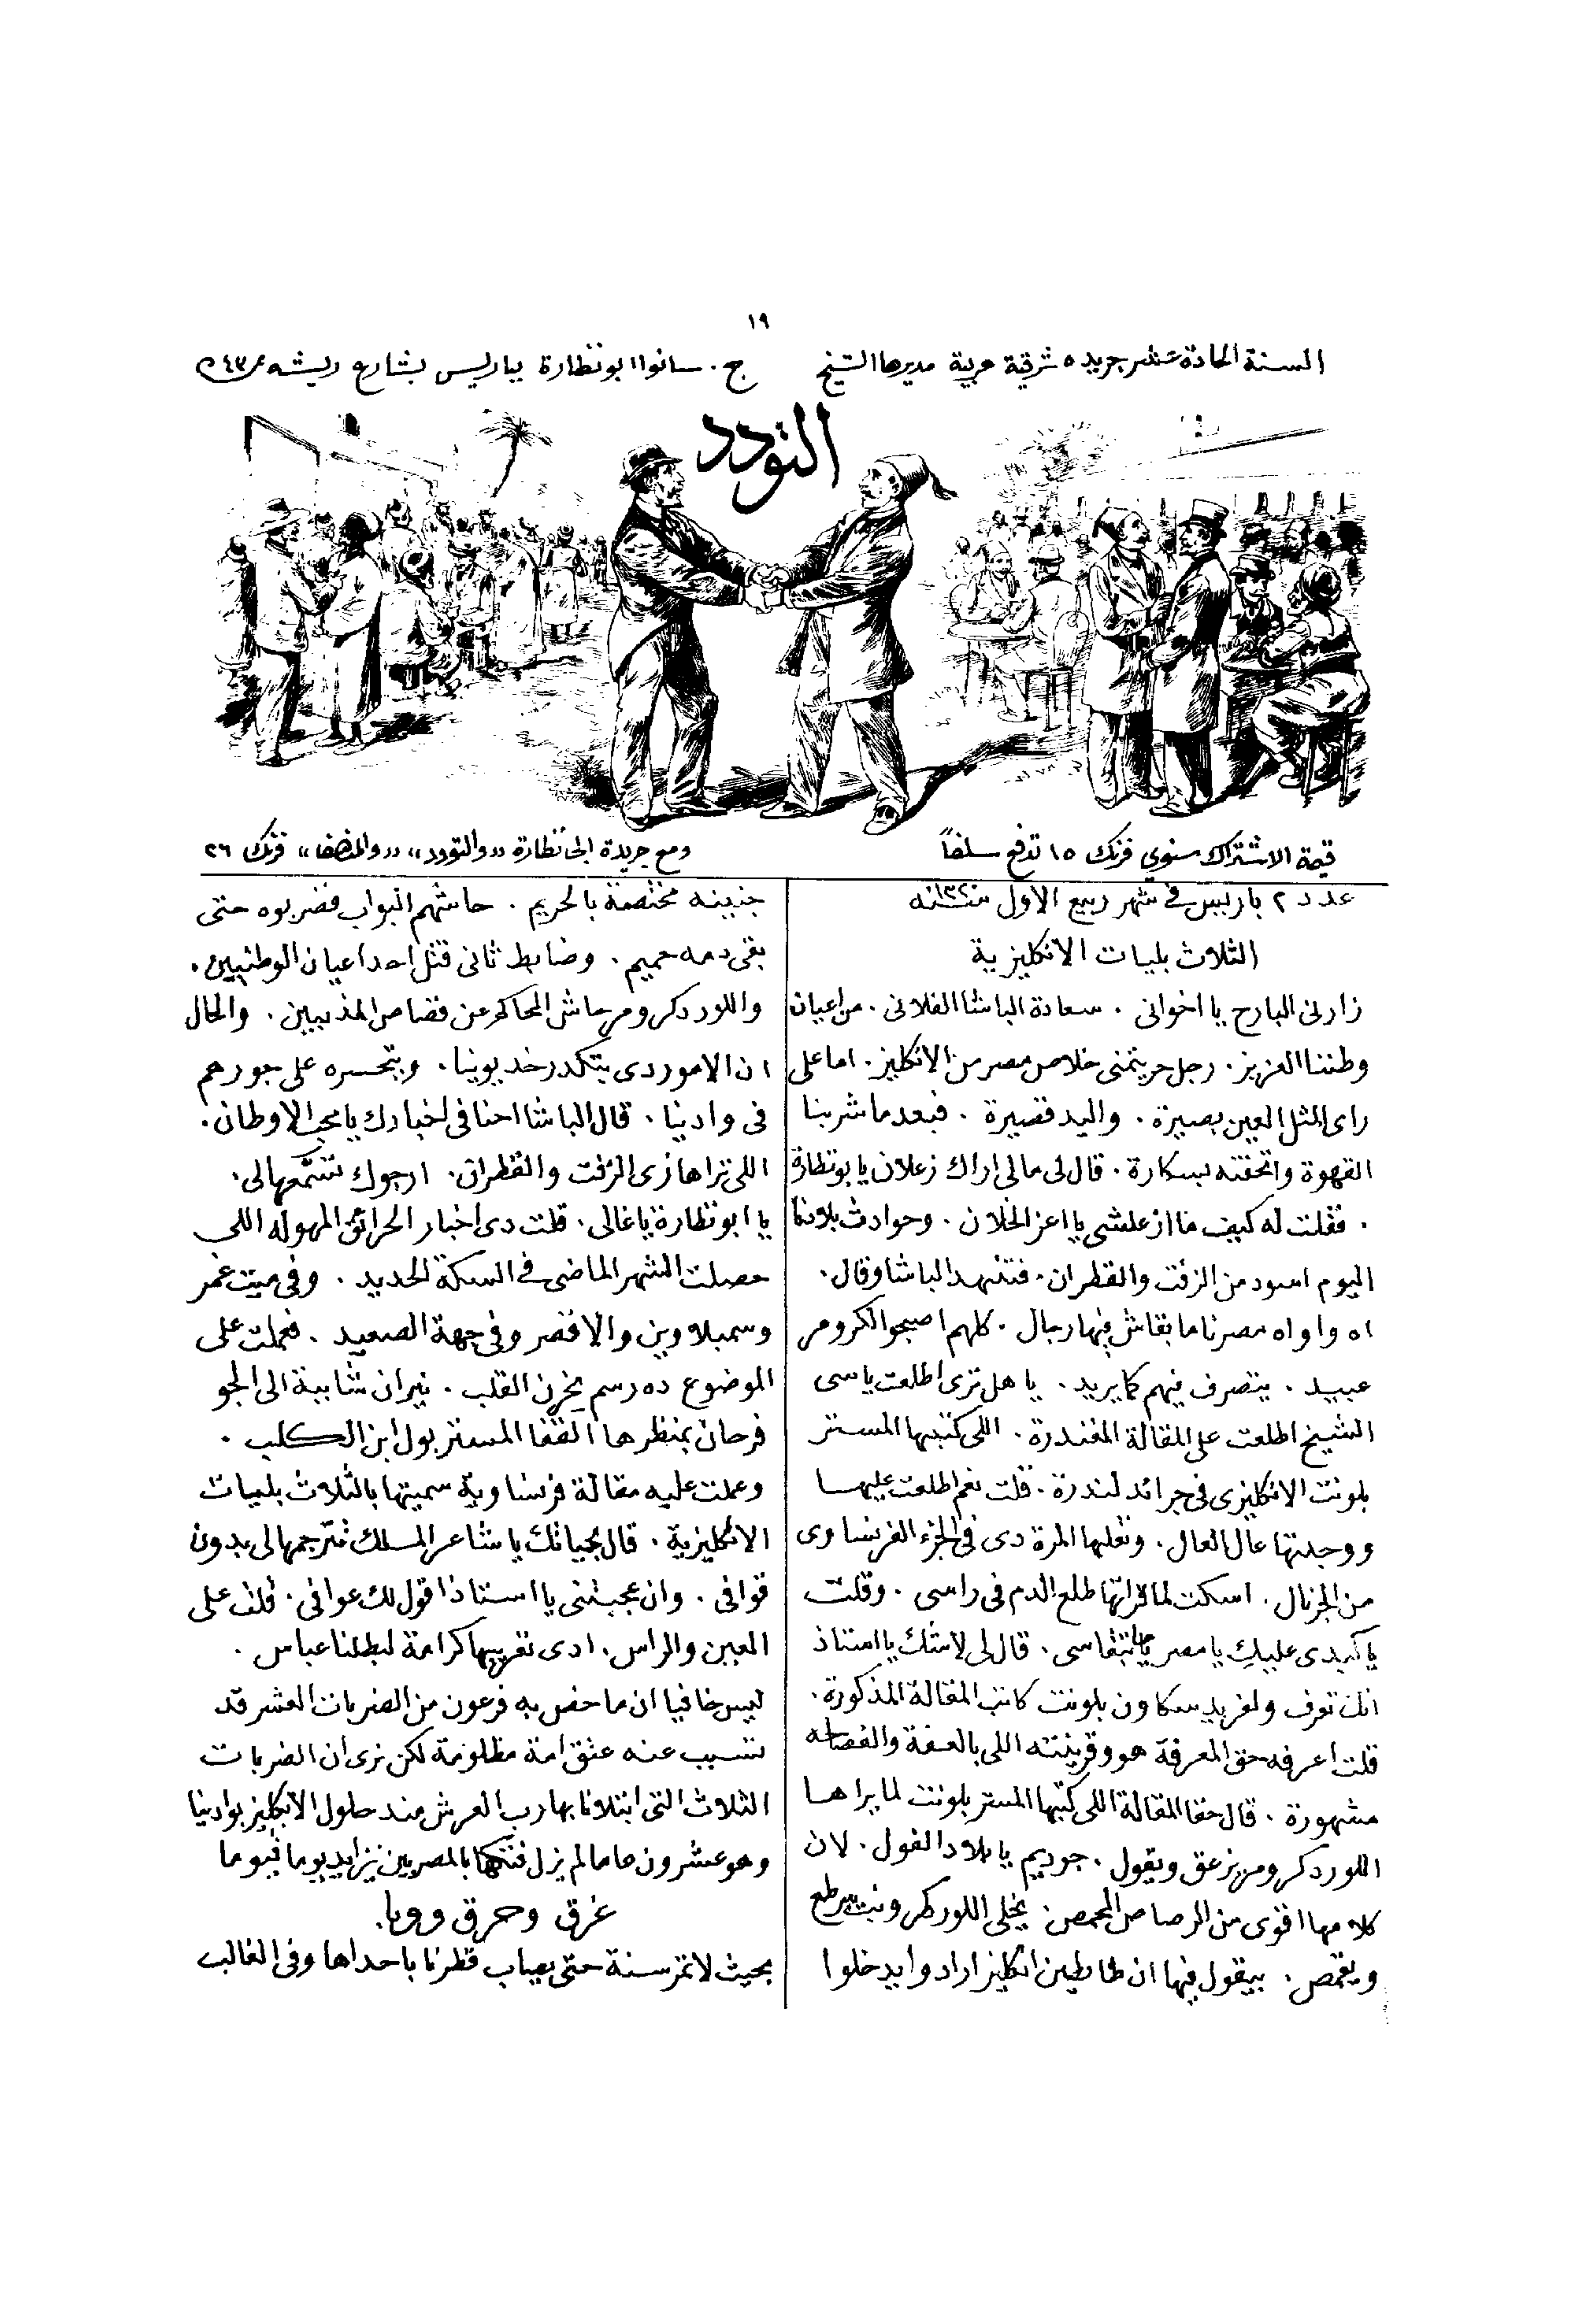 ١٩
السنة الحادة عشر جريده شرقية عربية مديرها الشيخ
ج. سانوا ابو نظارة بباريس بشارع ريشه نمرة ٤٣
التودد
قيمة الاشتراك سنوي فرنك ١٥ تدفع سلفاً
ومع جريدة ابى نظارة «والتودد» «والمنصف» فرنك ٢٦
عدد ٢ باريس في شهر ربيع الاول سنة ١٣٢٠
الثلاث بليات الانكليزية
زارنى البارح يا اخوانى . سعادة الباشا الفلانى . من اعيان
وطننا العزيز . رجل حر يتمنى خلاص مصر من الانكليز . اما على
راى المثل العين بصيرة . واليد قصيرة . فبعد ما شربنا
القهوة واتحفته بسكارة . قال لى مالى اراك زعلان يا بو نظارة
. فقلت له كيف ما ازعلشى يا اعز الخلان . وحوادث بلادنا
اليوم اسود من الزفت والقطران . فتنهد الباشا وقال .
اه واواه مصرنا ما بقاش فيها رجال . كلهم اصبحوا لكرومر
عبيد . يتصرف فيهم كما يريد . يا هل ترى اطلعت يا سى
الشيخ اطلعت على المقالة المغندرة . اللى كتبها المستر
بلونت الانكليزى فى جرائد لندرة . قلت نعم اطلعت عليها
ووجدتها عال العال . ونقلها المرة دى فى الجزء الفرنساوى
من الجرنال . اسكت لما قراتها طلع الدم فى راسى . وقلت
يا كبدى عليكِ يا مصر ياما تبقاسى . قال لى لاشك يا استاذ
انك تعرف ولفريد سكاون بلونت كاتب المقالة المذكورة .
قلت اعرفه حق المعرفة هو وقرينته اللى بالعفة والفصاحه
مشهورة . قال حقا المقالة اللى كتبها المستر بلونت لما يراها
اللورد كرومر يزعق ويقول . جوديم يا بلاد الفول . لان
كلامها اقوى من الرصاص المحمص . يخلى اللورد كرومر يبرطع
ويقمص . بيقول فيها ان ظابطين انكليز ارادوا يدخلوا
جنينه مختصة بالحريم . حاشهم البواب فضربوه حتى
بقى دمه حميم . وضابط ثانى قتل احد اعيان الوطنيين .
واللورد كرومر حاش المحاكم عن قصاص المذنبين . والحال
ان الامور دى يتكدر خديوينا . ويتحسره على جورهم
فى وادينا . قال الباشا احنا فى اخبارك يا محب الاوطان .
اللى تراها زى الزفت والقطران . ارجوك تسمعها لى .
يا ابو نظارة يا غالى . قلت دى اخبار الحرائق المهوله اللى
حصلت الشهر الماضى فى السكة الحديد . وفى ميت غمر
وسمبلاوين والاقصر وفى جهة الصعيد . فعملت على
الموضوع ده رسم يحزن القلب . نيران شاببة الى الجو
فرحان بمنظرها القفا المستر بول ابن الكلب .
وعملت عليه مقالة فرنساوية سميتها بالثلاث بليات
الانكليزية . قال بحياتك يا شاعر المسلك تترجمها لى بدون
قوافى . وان عجبتنى يا استاذ اقول لك عوافى . قلت على
العين والراس . ادى تعريبها كرامة لبطلنا عباس .
ليس خافيا ان ما خص به فرعون من الضربات العشر قد
تسبب عنه عتق امة مظلومة لكن نرى ان الضربات
الثلاث التى ابتلانا بها رب العرش منذ حلول الانكليز بوادينا
وهو عشرون عاما لم يزل فتكها بالمصريين يتزايد يوما فيوما
غرق وحرق ووبا .
بحيث لا تمر سنة حتى يصاب قطرنا باحداها وفى الغالب